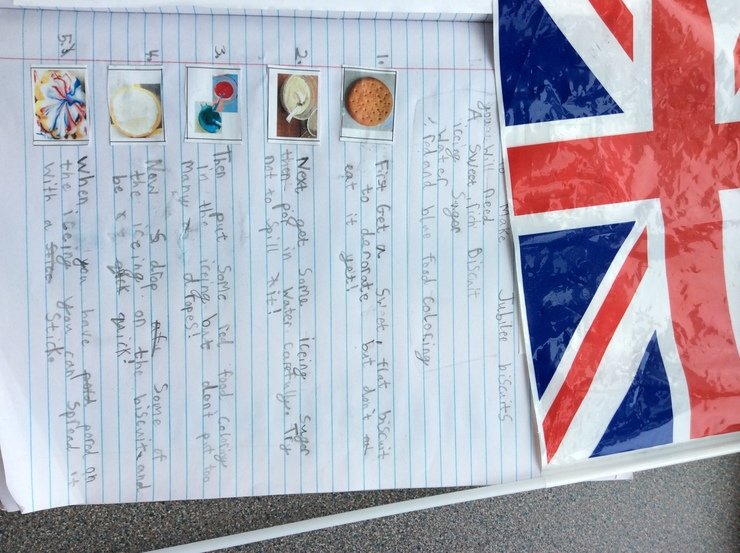 to make Jubilee biscuits
you Will need
A Sweet rich Biscuit
iceing Sugar
Water
red and blue food coloring
1.
First Get a Sweet, flat biscuit
to decorate but don't
eat it yet!
2.
Next get Some iceing Sugar
then por in water carefully. Try
not to spill it!
3.
Then put Some red food coloring
in the iceing but don't put too
many dropes!
4.
Now drop Some of
the iceing on the biscuit and
be quick!
5.
When you have pord on
the iceing you can spread it
With a Stick.